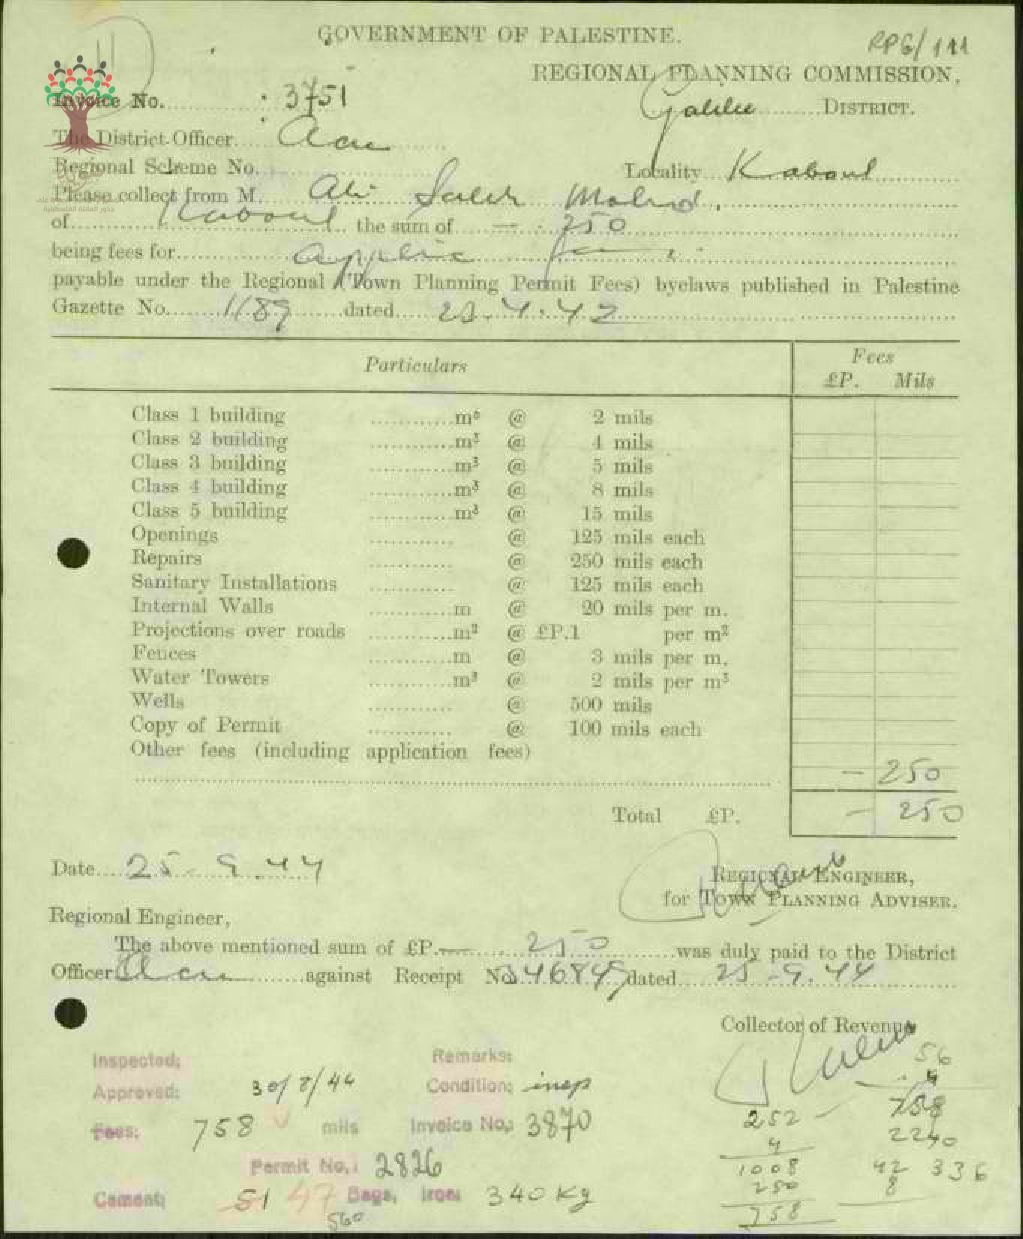 GOVERNMENT OF PALESTINE.
RPG/111
REGIONAL PLANNING COMMISSION,
Invoice No. : 3751
Galilee DISTRICT.
The District Officer Acre
Regional Scheme No.
Locality Kaboul
Please collect from M. Ali Saleh
of Kaboul the sum of — 250
being fees for Applic
payable under the Regional (Town Planning Permit Fees) byelaws published in Palestine
Gazette No. 1189 dated 23.4.42
Particulars
Fees
£P. Mils
Class 1 building m³ @ 2 mils
Class 2 building m³ @ 4 mils
Class 3 building m³ @ 5 mils
Class 4 building m³ @ 8 mils
Class 5 building m³ @ 15 mils
Openings @ 125 mils each
Repairs @ 250 mils each
Sanitary Installations @ 125 mils each
Internal Walls m @ 20 mils per m.
Projections over roads m² @ £P.1 per m²
Fences m @ 3 mils per m.
Water Towers m³ @ 2 mils per m³
Wells @ 500 mils
Copy of Permit @ 100 mils each
Other fees (including application fees)
— 250
Total £P. — 250
Date 25-9.44
REGIONAL ENGINEER,
for TOWN PLANNING ADVISER.
Regional Engineer,
The above mentioned sum of £P.— 250 was duly paid to the District
Officer Acre against Receipt No 346849 dated 25-9.44
Collector of Revenue
Inspected:
Remarks:
Approved: 30/8/44
Condition: insp
Fees: 758 mils
Invoice No.: 3870
Permit No.: 2826
Cement: 51 47 Bags, Iron: 340 Kg
560
56
4
252
758
4
2240
1008
42 336
250
8
758